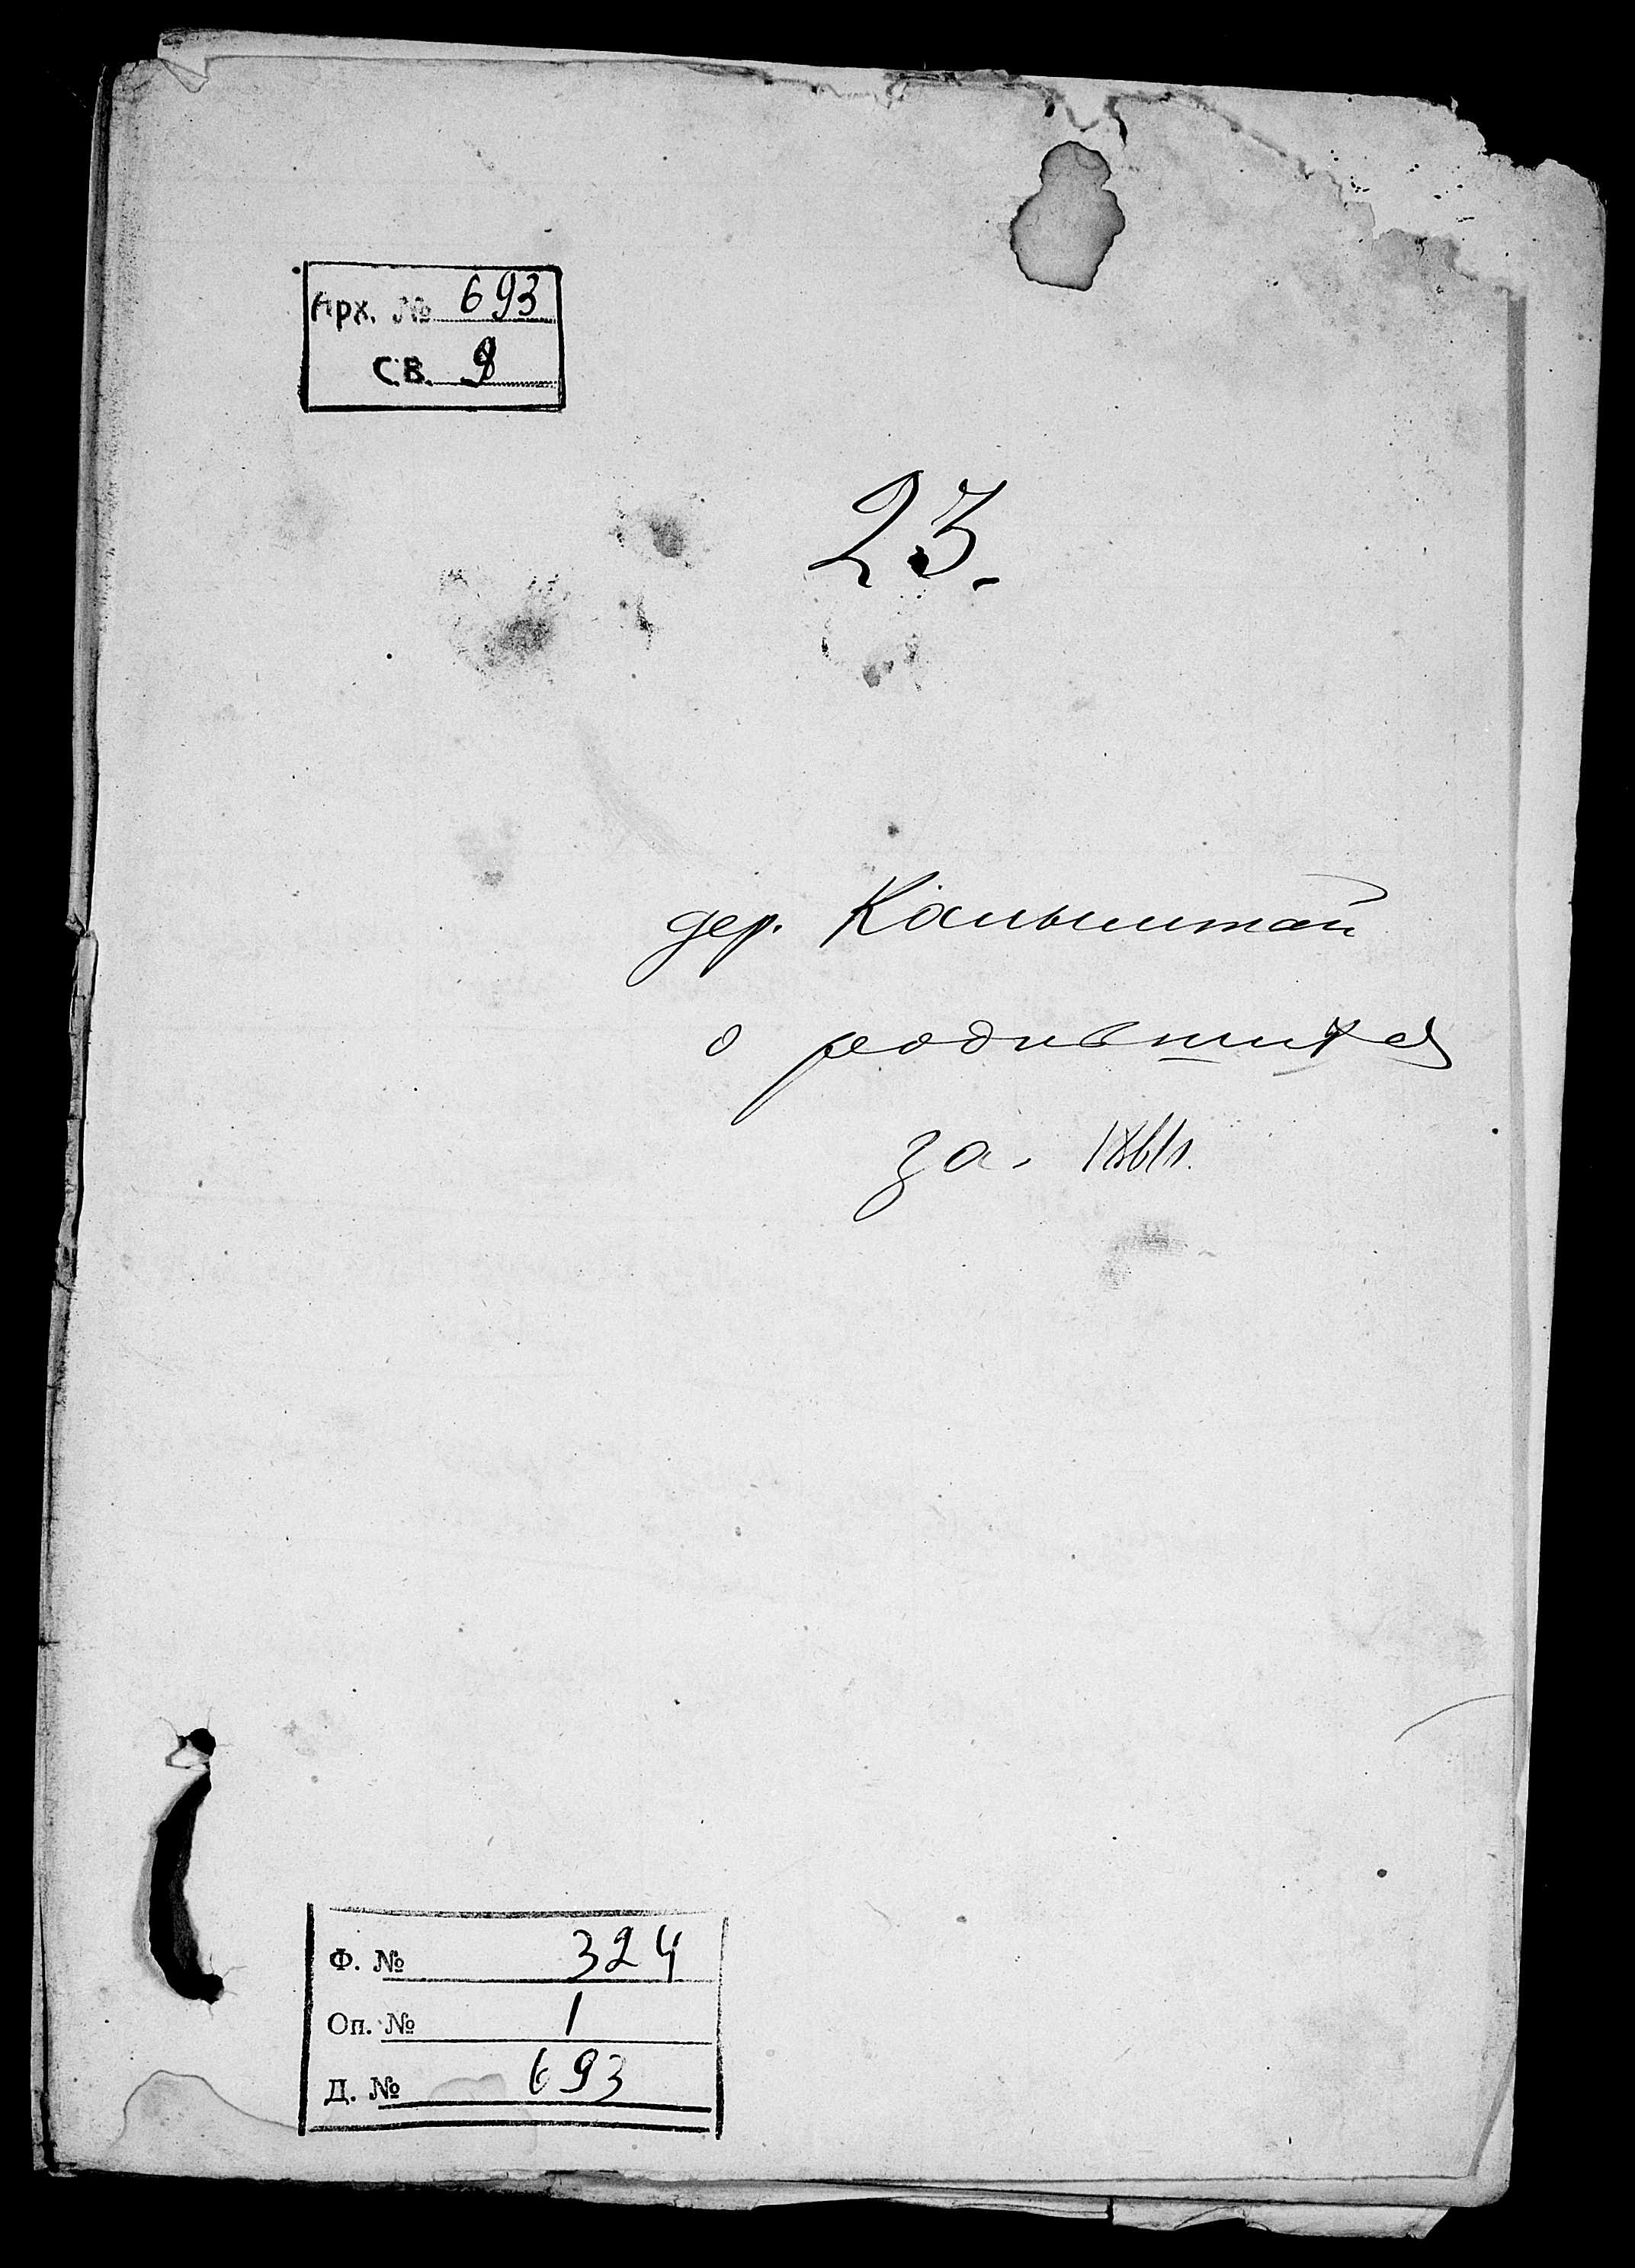 Арх. № 693
св. 9
23.
дер. Калышта́й
о родившихся
за. 1861г.
Ф. № 324
Оп. № 1
Д. № 693